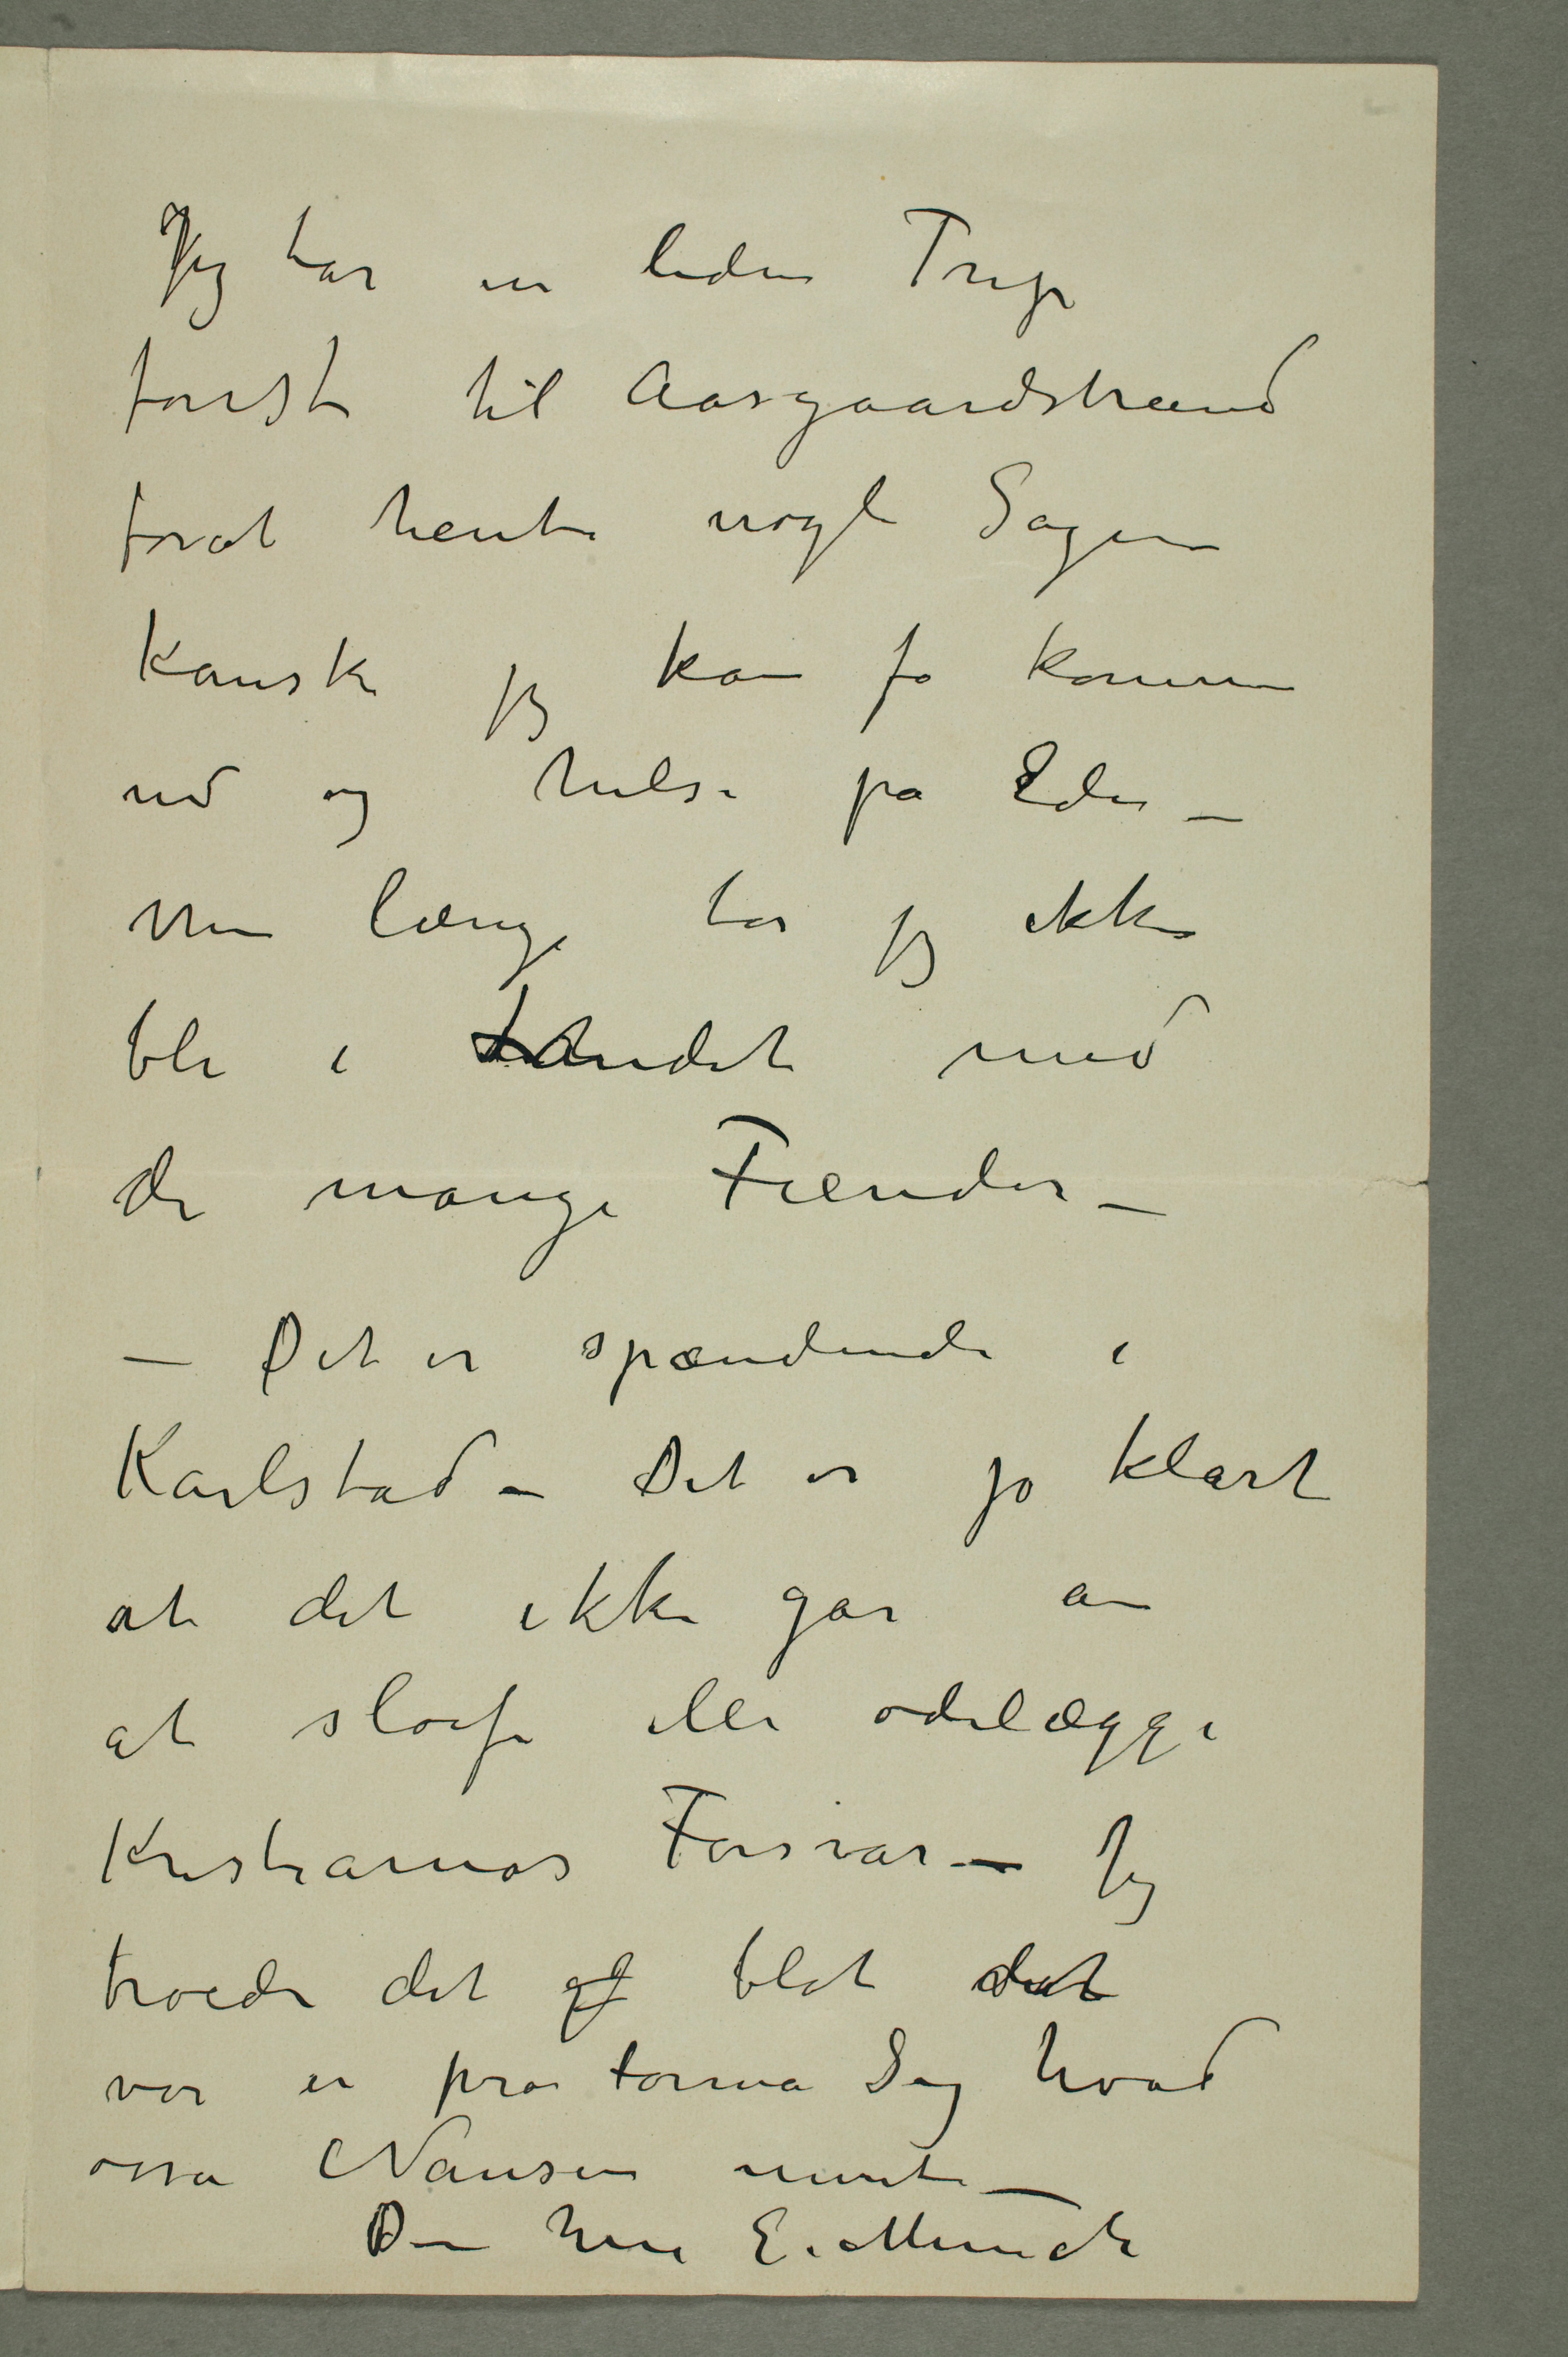 Jeg tar en liden Trip
først til Aasgaardstrand
forat hente nogle Sager
Kanske jeg kan få komme
ud og hilse på Eder –
Men længe tør jeg ikke
bli i Landet med
de mange Fiender –
– Det er spændende i
Karlstad – Det er jo klart
at det ikke går an
at sløife eller ødelægge
Kristianias Forsvar – Jeg
troede det blot
var en pro forma Sag hvad
osså Nansen mente –
Din hen E. Munch